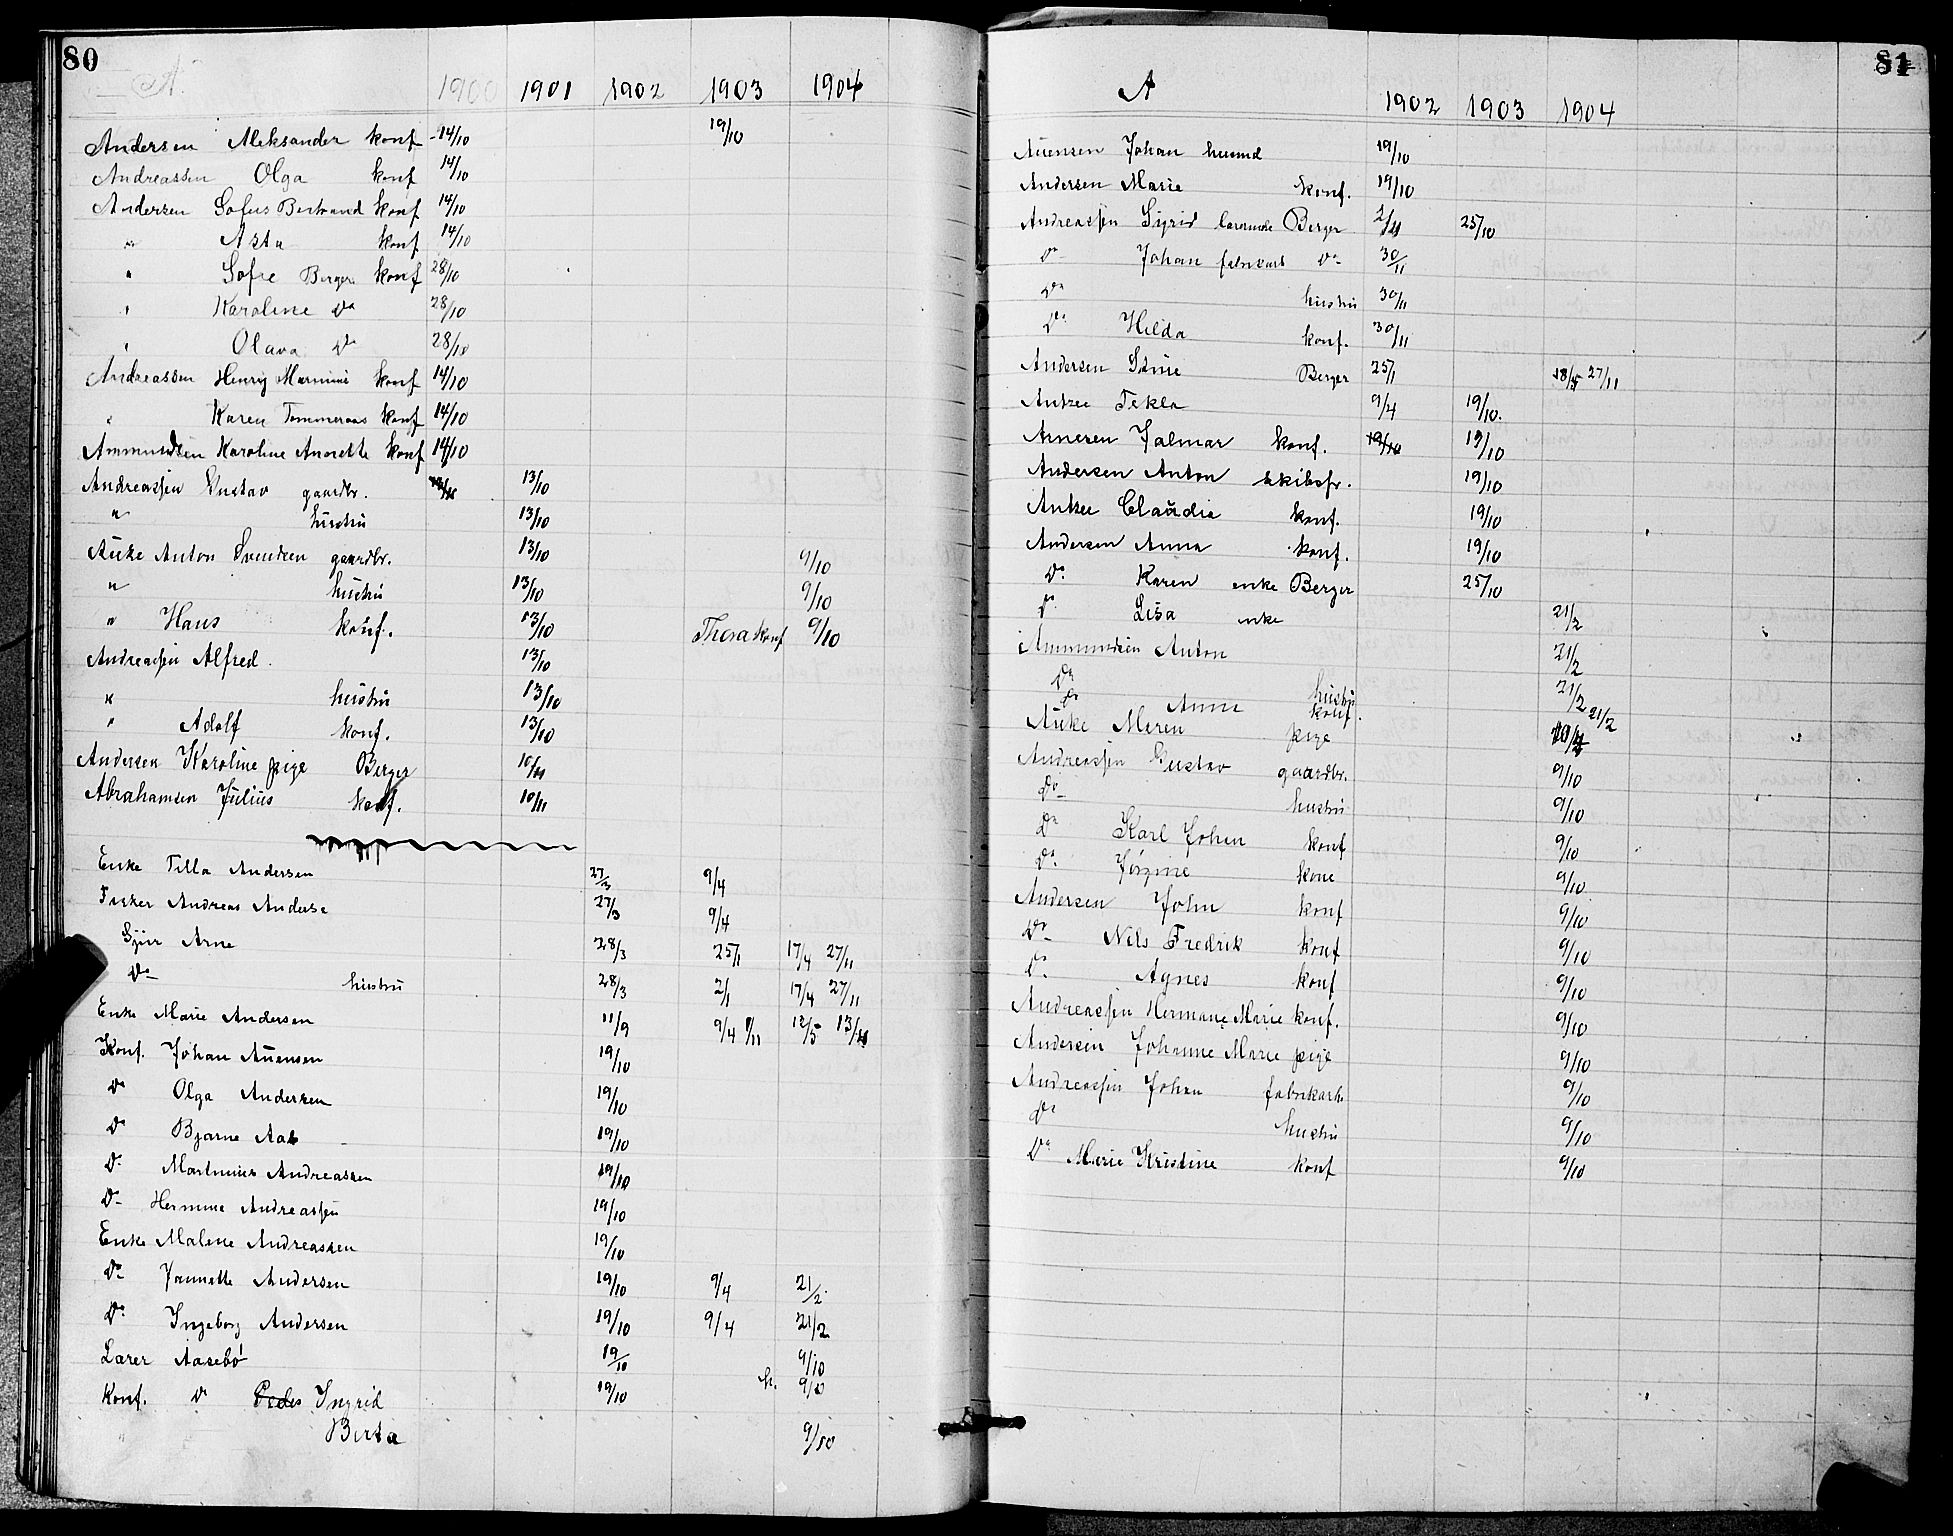 80
A.
1900 1901 1902 1903 1904
Andersen Aleksander konf 14/10 19/10
Andreassen Olga konf 14/10
Andersen Sofus Bertrand konf 14/10
" Asta konf 14/10
" Sofie Berger konf 28/10
" Karoline Do 28/10
" Olava Do 28/10
Andreassen Henry Marinius konf 14/10
" Karen Tommeraas konf 14/10
Ammundsen Karoline Anorette konf 14/10
Andreassen Gustav gaardbr. 13/10
" hustru 13/10
Auke Anton Svendsen gaardbr. 13/10 9/10
" hustru 13/10 9/10
" Hans konf. 13/10 Thora konf 9/10
Andreassen Alfred. 13/10
" hustru 13/10
" Adolf konf. 13/10
Andersen Karoline pige Berger 10/11
Abrahamsen Julius konf. 10/11
Enke Tilla Andersen 27/3 9/4
Andreas Anderse 27/3 9/4
Arne 28/3 25/1 17/4 27/11
Do hustru 28/3 2/1 17/4 27/11
Enke Marie Andersen 11/9 9/4 8/11 12/5 13/11
Konf. Johan Auensen 19/10
Do Olga Andersen 19/10
Do Bjarne Aas 19/10
Do Martinius Andreassen 19/10
Do Hermine Andreassen 19/10
Enke Malene Andreassen 19/10
Do Jannette Andersen 19/10 9/4 21/2
Do Ingeborg Andersen 19/10 9/4 21/2
Lærer Aasebö 19/10 9/10
Konf. Do Peder Ingrid 19/10 h. 9/10
Berta 9/10
81
A
1902 1903 1904
Auensen Johan husmd 19/10
Andersen Marie konf. 19/10
Andreassen Sigrid lærerinde Berger 2/11 25/10
Do Johan fabrikarb Do 30/11
Do hustru 30/11
Do Hilda konf. 30/11
Andersen Stine Berger 25/1 18/5 27/11
Anker Tekla 9/4 19/10.
Arnesen Jalmar konf. 19/10 19/10
Andersen Anton skibsfr. 19/10
Anker Claudie konf. 19/10
Andersen Anna konf. 19/10
Do Karen enke Berger 25/10
Do Lisa enke 21/2
Ammundsen Anton 21/2
Do hustru 21/2
Do Anne konf. 21/2
Auke Meren pige
Andreassen Gustav gaardbr. 9/10
Do hustru 9/10
Do Karl Johen konf 9/10
Do Jörgine kone 9/10
Andersen John konf 9/10
Do Nils Fredrik konf 9/10
Do Agnes konf 9/10
Andreassen Hermane Marie konf. 9/10
Andersen Johanne Marie pige 9/10
Andreassen Johan fabrikarb. 9/10
Do hustru 9/10
Do Marie Kristine konf 9/10